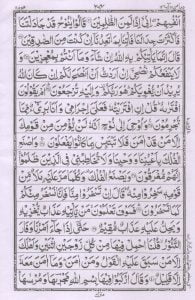 اَنْفُسِهِمْ اِنِّيْٓ اِذًا لَّمِنَ الظّٰلِمِيْنَ قَالُوْا يٰنُوْحُ قَدْ جَادَلْتَنَا
فَاَكْثَرْتَ جِدَالَنَا فَاْتِنَا بِمَا تَعِدُنَآ اِنْ كُنْتَ مِنَ الصّٰدِقِيْنَ
قَالَ اِنَّمَا يَاْتِيْكُمْ بِهِ اللّٰهُ اِنْ شَآءَ وَمَآ اَنْتُمْ بِمُعْجِزِيْنَ وَ
لَا يَنْفَعُكُمْ نُصْحِيْٓ اِنْ اَرَدْتُّ اَنْ اَنْصَحَ لَكُمْ اِنْ كَانَ اللّٰهُ
يُرِيْدُ اَنْ يُّغْوِيَكُمْ هُوَ رَبُّكُمْ وَاِلَيْهِ تُرْجَعُوْنَ اَمْ يَقُوْلُوْنَ
افْتَرٰىهُ قُلْ اِنِ افْتَرَيْتُهٗ فَعَلَيَّ اِجْرَامِيْ وَاَنَا بَرِيْٓءٌ مِّمَّا
تُجْرِمُوْنَ وَاُوْحِيَ اِلٰى نُوْحٍ اَنَّهٗ لَنْ يُّؤْمِنَ مِنْ قَوْمِكَ
اِلَّا مَنْ قَدْ اٰمَنَ فَلَا تَبْتَئِسْ بِمَا كَانُوْا يَفْعَلُوْنَ وَاصْنَعِ
الْفُلْكَ بِاَعْيُنِنَا وَوَحْيِنَا وَلَا تُخَاطِبْنِيْ فِي الَّذِيْنَ ظَلَمُوْا اِنَّهُمْ
مُّغْرَقُوْنَ وَيَصْنَعُ الْفُلْكَ وَكُلَّمَا مَرَّ عَلَيْهِ مَلَاٌ مِّنْ
قَوْمِهٖ سَخِرُوْا مِنْهُ قَالَ اِنْ تَسْخَرُوْا مِنَّا فَاِنَّا نَسْخَرُ مِنْكُمْ
كَمَا تَسْخَرُوْنَ فَسَوْفَ تَعْلَمُوْنَ مَنْ يَّاْتِيْهِ عَذَابٌ يُّخْزِيْهِ
وَيَحِلُّ عَلَيْهِ عَذَابٌ مُّقِيْمٌ حَتّٰٓى اِذَا جَآءَ اَمْرُنَا وَفَارَ
التَّنُّوْرُ قُلْنَا احْمِلْ فِيْهَا مِنْ كُلٍّ زَوْجَيْنِ اثْنَيْنِ وَاَهْلَكَ
اِلَّا مَنْ سَبَقَ عَلَيْهِ الْقَوْلُ وَمَنْ اٰمَنَ وَمَآ اٰمَنَ مَعَهٗٓ
اِلَّا قَلِيْلٌ وَقَالَ ارْكَبُوْا فِيْهَا بِسْمِ اللّٰهِ مَجْرٖىهَا وَمُرْسٰىهَا